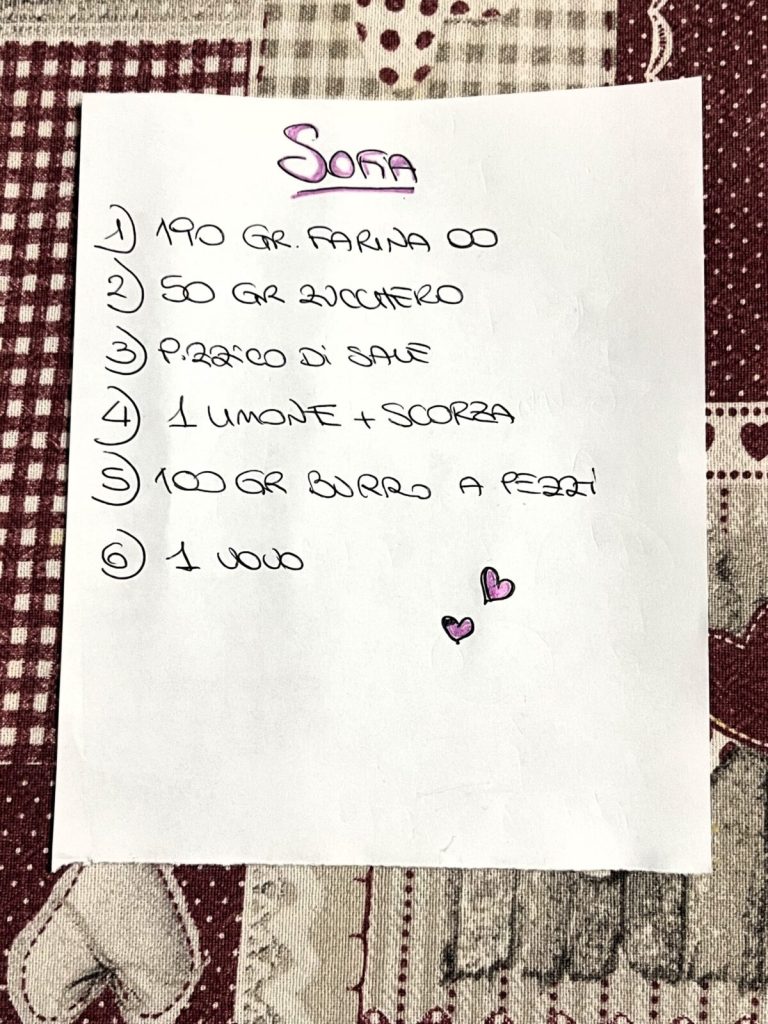 SOFIA
1) 190 GR. FARINA 00
2) 50 GR ZUCCHERO
3) PIZZICO DI SALE
4) 1 LIMONE + SCORZA
5) 100 GR BURRO A PEZZI
6) 1 UOVO